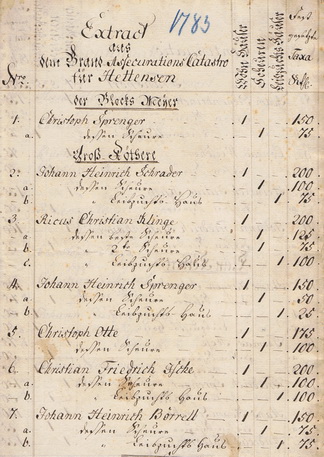 Extract 1783
aus
dem Brand Assecurations Catastro
für Hettensen
Nro. Wohn Häuser Scheuren Leibzuchts Häuser Taxa
der Blocks Meyer
1. Christoph Sprenger 1 150
a. dessen Scheure 1 75
Groß Köthere
2. Johann Heinrich Schrader 1 200
a. dessen Scheure 1 100
b. " Leibzuchts Haus 1 75
3. Ricus Christian Klinge 1 200
a. dessen erste Scheure 1 125
b. " 2te Scheure 1 75
c. Leibzuchts Haus 1 100
4. Johann Heinrich Sprenger 1 150
a. dessen Scheure 1 50
b. " Leibzuchts Haus 1 25
5. Christoph Otte 1 175
dessen Scheure 1 100
6. Christian Friedrich Ische 1 200
a. dessen Scheure 1 100
b. " Leibzuchts Haus 1 100
7. Johann Heinrich Börrell 1 150
a. dessen Scheure 1 75
b. " Leibzuchts Haus 1 75